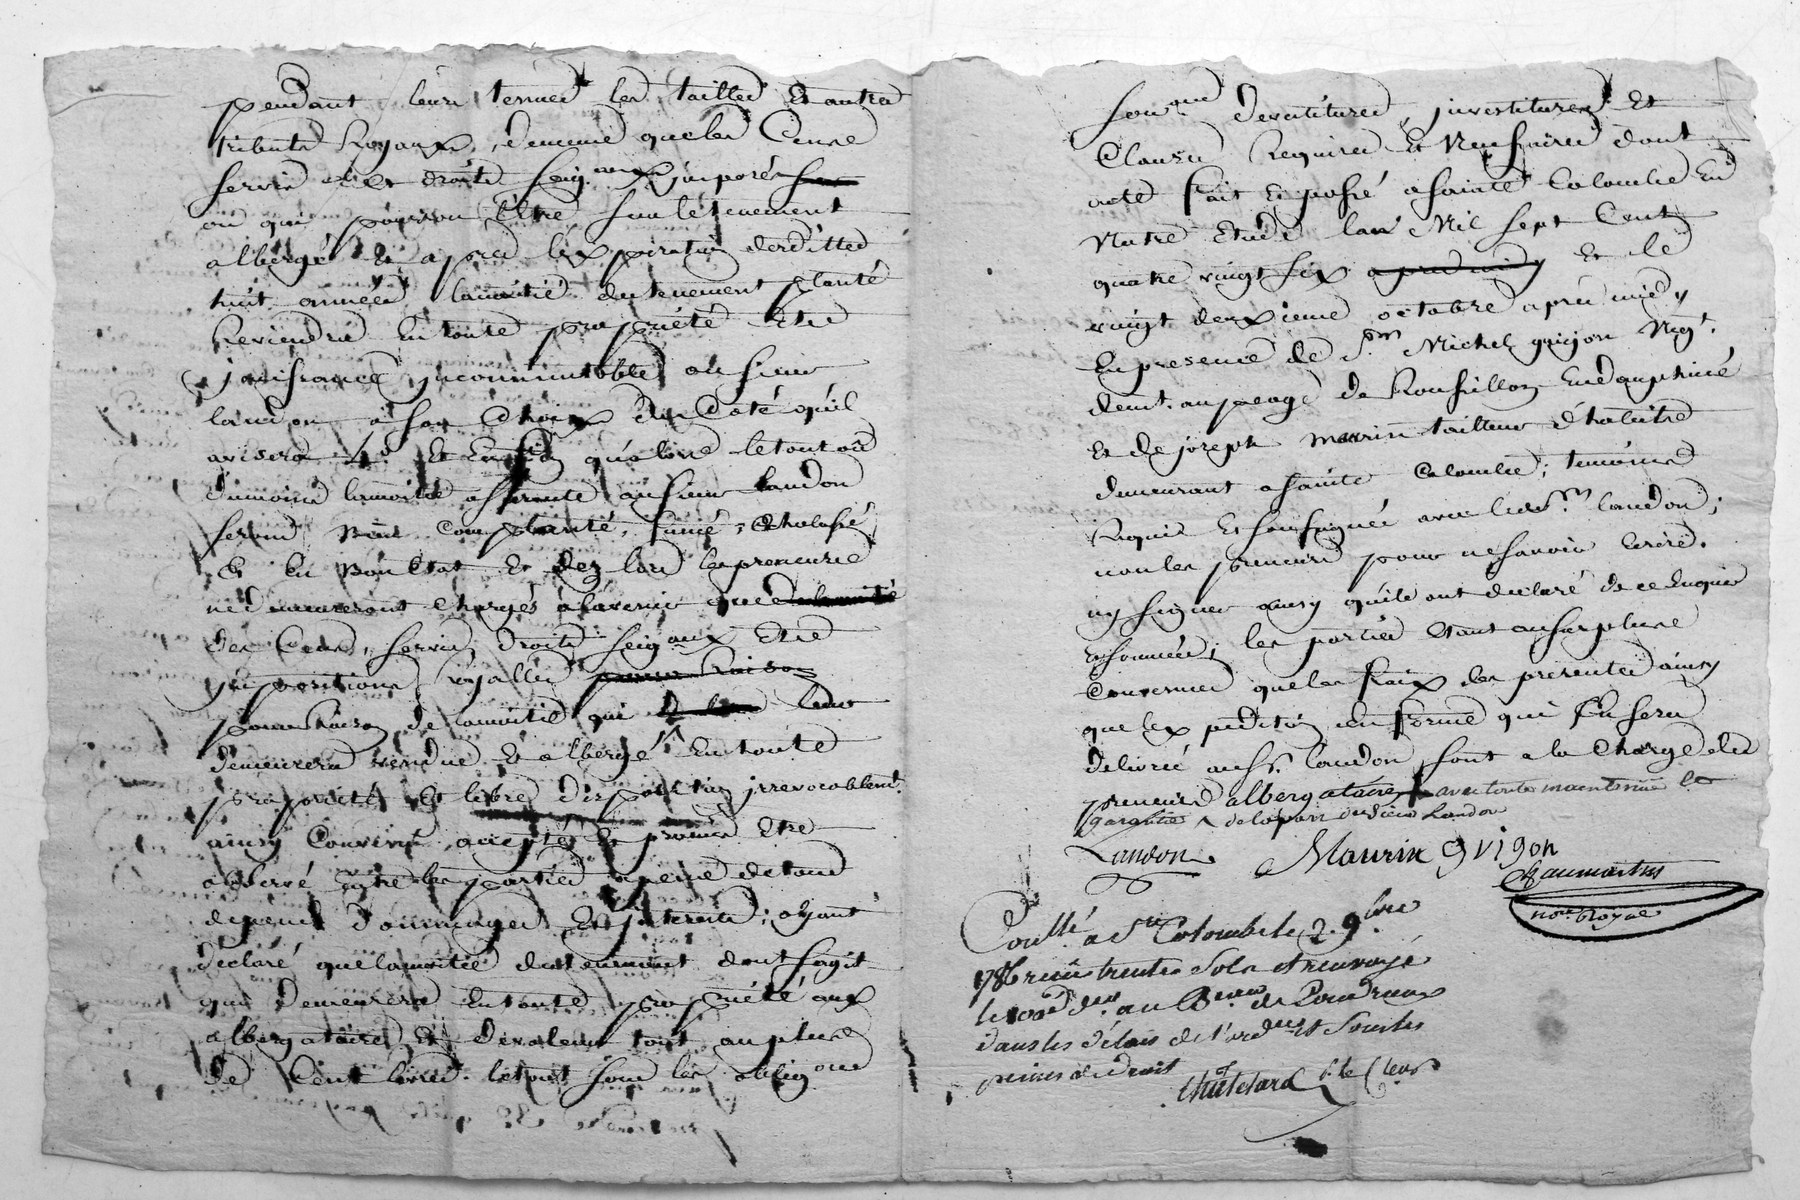 pendant leurs termes les tailles et autres
tributs Royaux, dememe que les Cens
servis et droits seig.aux imposés
ou qui pourront l'etre sur le tenement
albergé et apres l'expiration desdittes
huit années lamoitié du tenement planté
Reviendra en toute propriété et
jouissance incommutable au sieur
landon a son choix du coté qu'il
avisera 4.° Et enfin qu'alors letout ou
dumoins lamoitié afferente ausieur landon
seront bien complanté, fumé, échalassé
et en bon Etat et dez lors les preneurs
nedemeureront chargés a lavenir que
des Cens, servis, droits seig.aux et
impositions royalles
pour Raison de lamoitié qui leur
demeurera vendue et albergé en toute
propriété et libre disposition irrevocablem.t
ainsy convenu, accepté et promis etre
observé entre les parties a peine de tous
depens dommages et interets; ayant
déclaré que lamoitié dutenement dont sagit
qui demeurera entoute propriété aux
albergataires est devaleur tout auplus
de Cent livres. letout sous les oblig.ons
soum.ons devetitures, investitures et
Clauses Requises et Necessaires dont
acte fait et passé asainte Colombe en
Notre etude lan Mil sept Cent
quatre vingt six apres midy et le
vingt deuxieme octobre apres midy
en presence de s.r Michel guijon Neg.t
demt. au peage de Roussillon en dauphiné
et de joseph maurin tailleur d'habits
demeurant a sainte Colombe; temoins
Requis et soussignés avec ledit s.r landon;
non les preneurs pour nesavoir ecrire
ny signer ainsy qu'ils ont declaré de ce enquis
et sommés; les parties etant ausurplus
convenues que les fraix des presentes ainsy
que l'expedition en forme qui en sera
delivrée aus.r landon sont a la charge des
preneurs albergataires avec toute maintenue et
garantie de la part du sieur Landon
Landon Maurin gvigon
Chaumartin
no.re Royal
Con.llé a S.te Colombe le 2 9.bre
1786 reçu trente sols et renvoyé
au B.eau de Condrieux
dans les délais de l'ord.ce et sous les
peines de droit
Chatelard